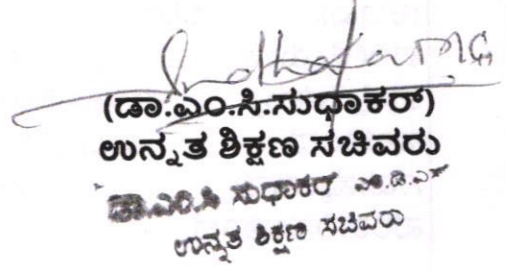 (ಡಾ.ಎಂ.ಸಿ.ಸುಧಾಕರ್)
ಉನ್ನತ ಶಿಕ್ಷಣ ಸಚಿವರು
ಡಾ.ಎಂ.ಸಿ ಸುಧಾಕರ ಎಂ.ಡಿ.ಎಸ್
ಉನ್ನತ ಶಿಕ್ಷಣ ಸಚಿವರು